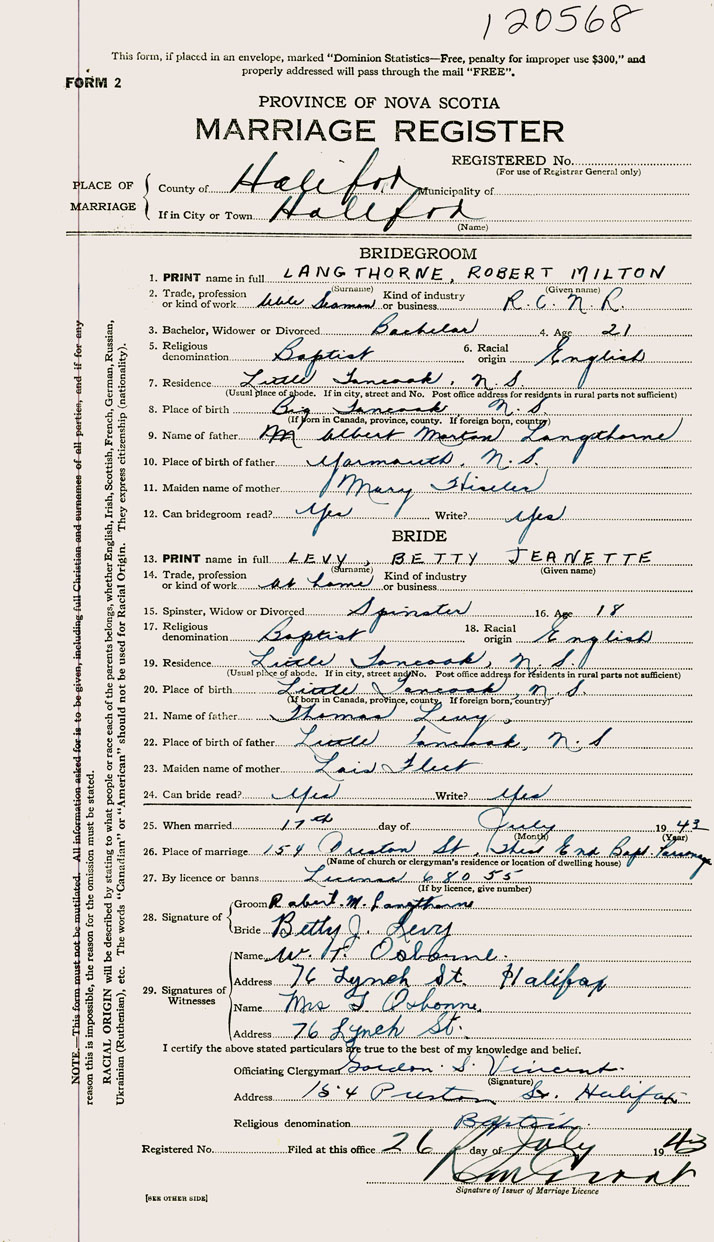 120568
This form, if placed in an envelope, marked "Dominion Statistics—Free, penalty for improper use $300," and
properly addressed will pass through the mail "FREE".
FORM 2
PROVINCE OF NOVA SCOTIA
MARRIAGE REGISTER
REGISTERED No.
(For use of Registrar General only)
PLACE OF MARRIAGE
County of Halifax Municipality of
If in City or Town Halifax
(Name)
BRIDEGROOM
1. PRINT name in full LANGTHORNE, ROBERT MILTON
(Surname) (Given name)
2. Trade, profession or kind of work Able Seaman Kind of industry or business R.C.N.R.
3. Bachelor, Widower or Divorced Bachelor 4. Age 21
5. Religious denomination Baptist 6. Racial origin English
7. Residence Little Tancook, N.S.
(Usual place of abode. If in city, street and No. Post office address for residents in rural parts not sufficient)
8. Place of birth Big Tancook N.S.
(If born in Canada, province, county. If foreign born, country)
9. Name of father Albert Morton Langthorne
10. Place of birth of father Yarmouth, N.S.
11. Maiden name of mother Mary Hiseler
12. Can bridegroom read? Yes Write? Yes
BRIDE
13. PRINT name in full LEVY, BETTY JEANETTE
(Surname) (Given name)
14. Trade, profession or kind of work at home Kind of industry or business
15. Spinster, Widow or Divorced Spinster 16. Age 18
17. Religious denomination Baptist 18. Racial origin English
19. Residence Little Tancook, N.S.
(Usual place of abode. If in city, street and No. Post office address for residents in rural parts not sufficient)
20. Place of birth Little Tancook, N.S.
(If born in Canada, province, county. If foreign born, country)
21. Name of father Thomas Levy.
22. Place of birth of father Little Tancook, N.S
23. Maiden name of mother Lois Fleet
24. Can bride read? Yes Write? Yes
25. When married 17th day of July 1943
(Month) (Year)
26. Place of marriage 154 Preston St. End Bapt. Parsonage
(Name of church or clergyman's residence or location of dwelling house)
27. By licence or banns License 68055
(If by licence, give number)
28. Signature of
Groom Robert. M. Langthorne
Bride Betty J. Levy
29. Signatures of Witnesses
Name W. Osborne.
Address 76 Lynch St. Halifax
Name Mrs Osborne.
Address 76 Lynch St.
I certify the above stated particulars are true to the best of my knowledge and belief.
Officiating Clergyman Gordon S. Vincent
(Signature)
Address 154 Preston St. Halifax
Religious denomination Baptist.
Registered No. Filed at this office 26 day of July 1943
Signature of Issuer of Marriage Licence
[SEE OTHER SIDE]
NOTE.—This form must not be mutilated. All information asked for is to be given, including full Christian and surnames of all parties, and if for any
reason this is impossible, the reason for the omission must be stated.
RACIAL ORIGIN will be described by stating to what people or race each of the parents belongs, whether English, Irish, Scottish, French, German, Russian,
Ukrainian (Ruthenian), etc. The words "Canadian" or "American" should not be used for Racial Origin. They express citizenship (nationality).